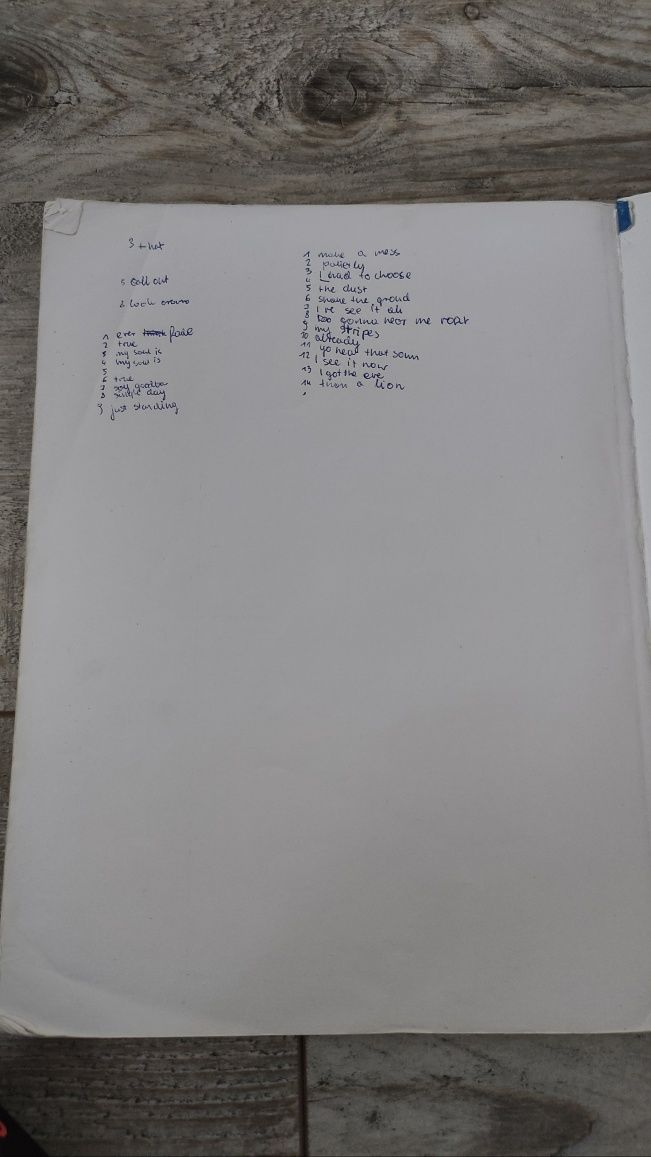 3 that
5 Call out
2 look
1 ever fade
2 true
3 my soul is
4 my soul is
5
6 true
7 say
8 single day
9 just standing
1 make a mess
2
3 I had to choose
4
5 the dust
6 shake the
7 I've see it all
8 gonna hear me roar
9 my stripes
10 already
11 yo hear that
12 I see it now
13 I got the eye
14 than a lion